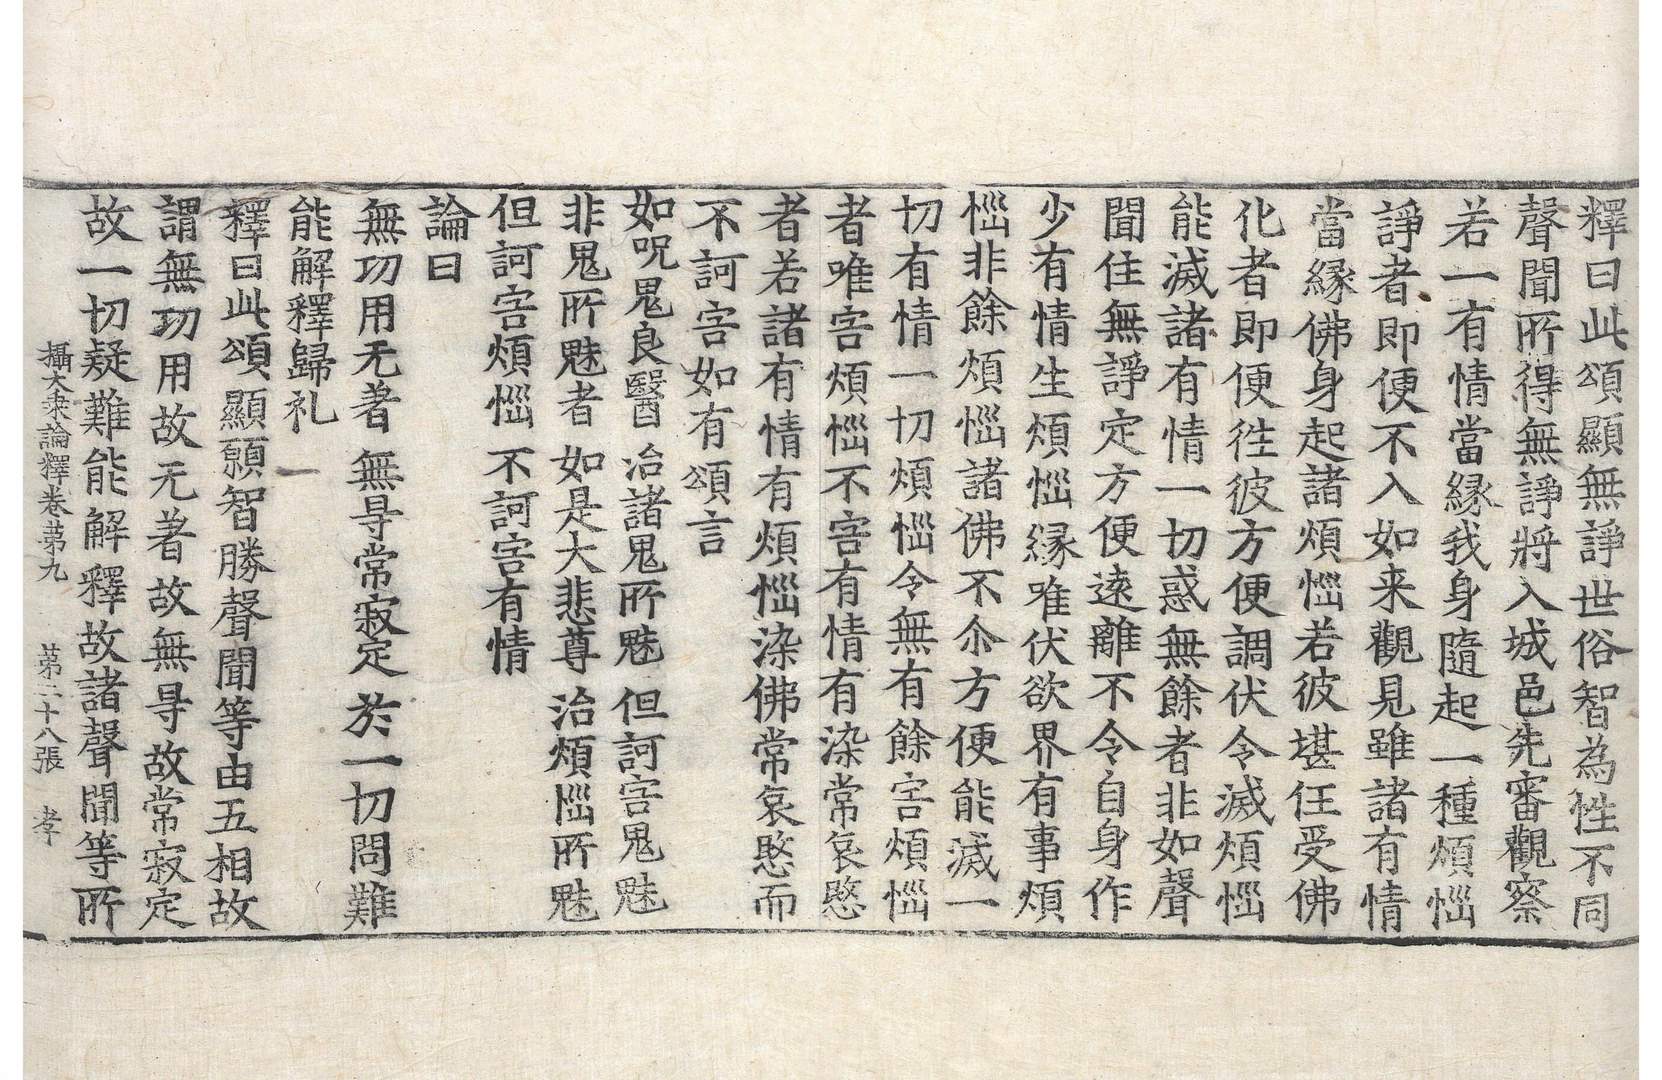 釋曰此頌顯無諍世俗智為性不同
聲聞所得無諍將入城邑先審觀察
若一有情當緣我身隨起一種煩惱
諍者即便不入如来觀見雖諸有情
當緣佛身起諸煩惱若彼堪任受佛
化者即便徃彼方便調伏令滅煩惱
能滅諸有情一切惑無餘者非如聲
聞住無諍定方便遠離不令自身作
少有情生煩惱緣唯伏欲界有事煩
惱非餘煩惱諸佛不尒方便能滅一
切有情一切煩惱令無有餘害煩惱
者唯害煩惱不害有情有染常哀愍
者若諸有情有煩惱染佛常哀愍而
不訶害如有頌言
如呪鬼良醫 治諸鬼所魅 但訶害鬼魅
非鬼所魅者 如是大悲尊 治煩惱所魅
但訶害煩惱 不訶害有情
論曰
無功用无著 無㝵常寂定 於一切問難
能解釋歸礼
釋曰此頌顯願智勝聲聞等由五相故
謂無功用故无著故無㝵故常寂定
故一切疑難能解釋故諸聲聞等所
攝大乗論釋卷苐九 苐二十八張 孝